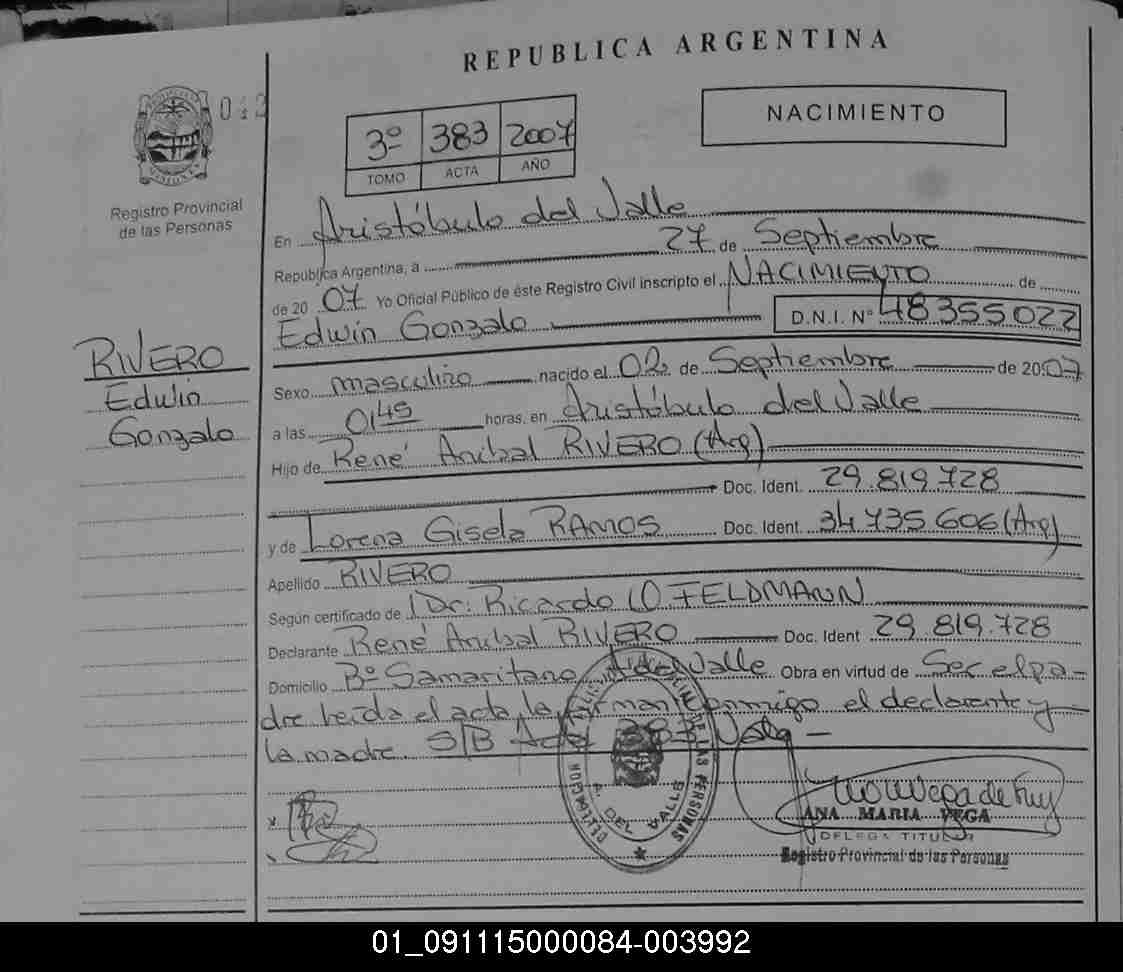 REPUBLICA ARGENTINA
NACIMIENTO
3º 383 2007
TOMO ACTA AÑO
Registro Provincial
de las Personas
En Aristóbulo del Valle
República Argentina, a 27 de Septiembre
de 20 07 Yo Oficial Público de éste Registro Civil inscripto el NACIMIENTO de
Edwin Gonzalo D.N.I. Nº 48355022
RIVERO
Edwin
Gonzalo
Sexo masculino nacido el 02 de Septiembre de 2007
a las 0,45 horas, en Aristóbulo del Valle
Hijo de René Anibal RIVERO (Arg)
Doc. Ident. 29.819.728
y de Lorena Gisela RAMOS Doc. Ident. 34 735 606 (Arg)
Apellido RIVERO
Según certificado de Dr. Ricardo O. FELDMANN
Declarante René Anibal RIVERO Doc. Ident 29 819.728
Domicilio Bº Samaritano A. del Valle Obra en virtud de Ser el pa-
dre leída el acta la firman conmigo el declarante y
la madre. S/B Vale -
DELEGACION
DE LAS PERSONAS
A. DEL VALLE
ANA MARIA VEGA
DELEGADA TITULAR
Registro Provincial de las Personas
01_091115000084-003992